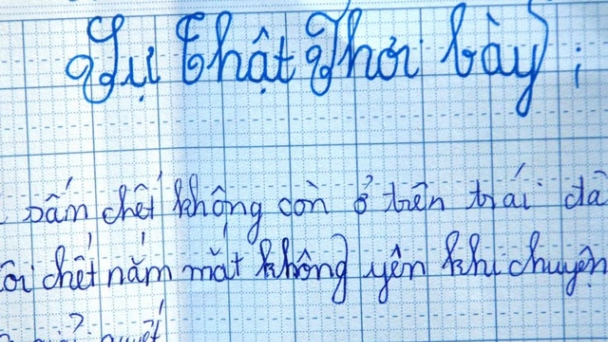 Sự Thật Phơi bày :
bấn chết không còn ở trên trái đấ
ôi chết nắm mắt không yên khi chuyện
giải quyết